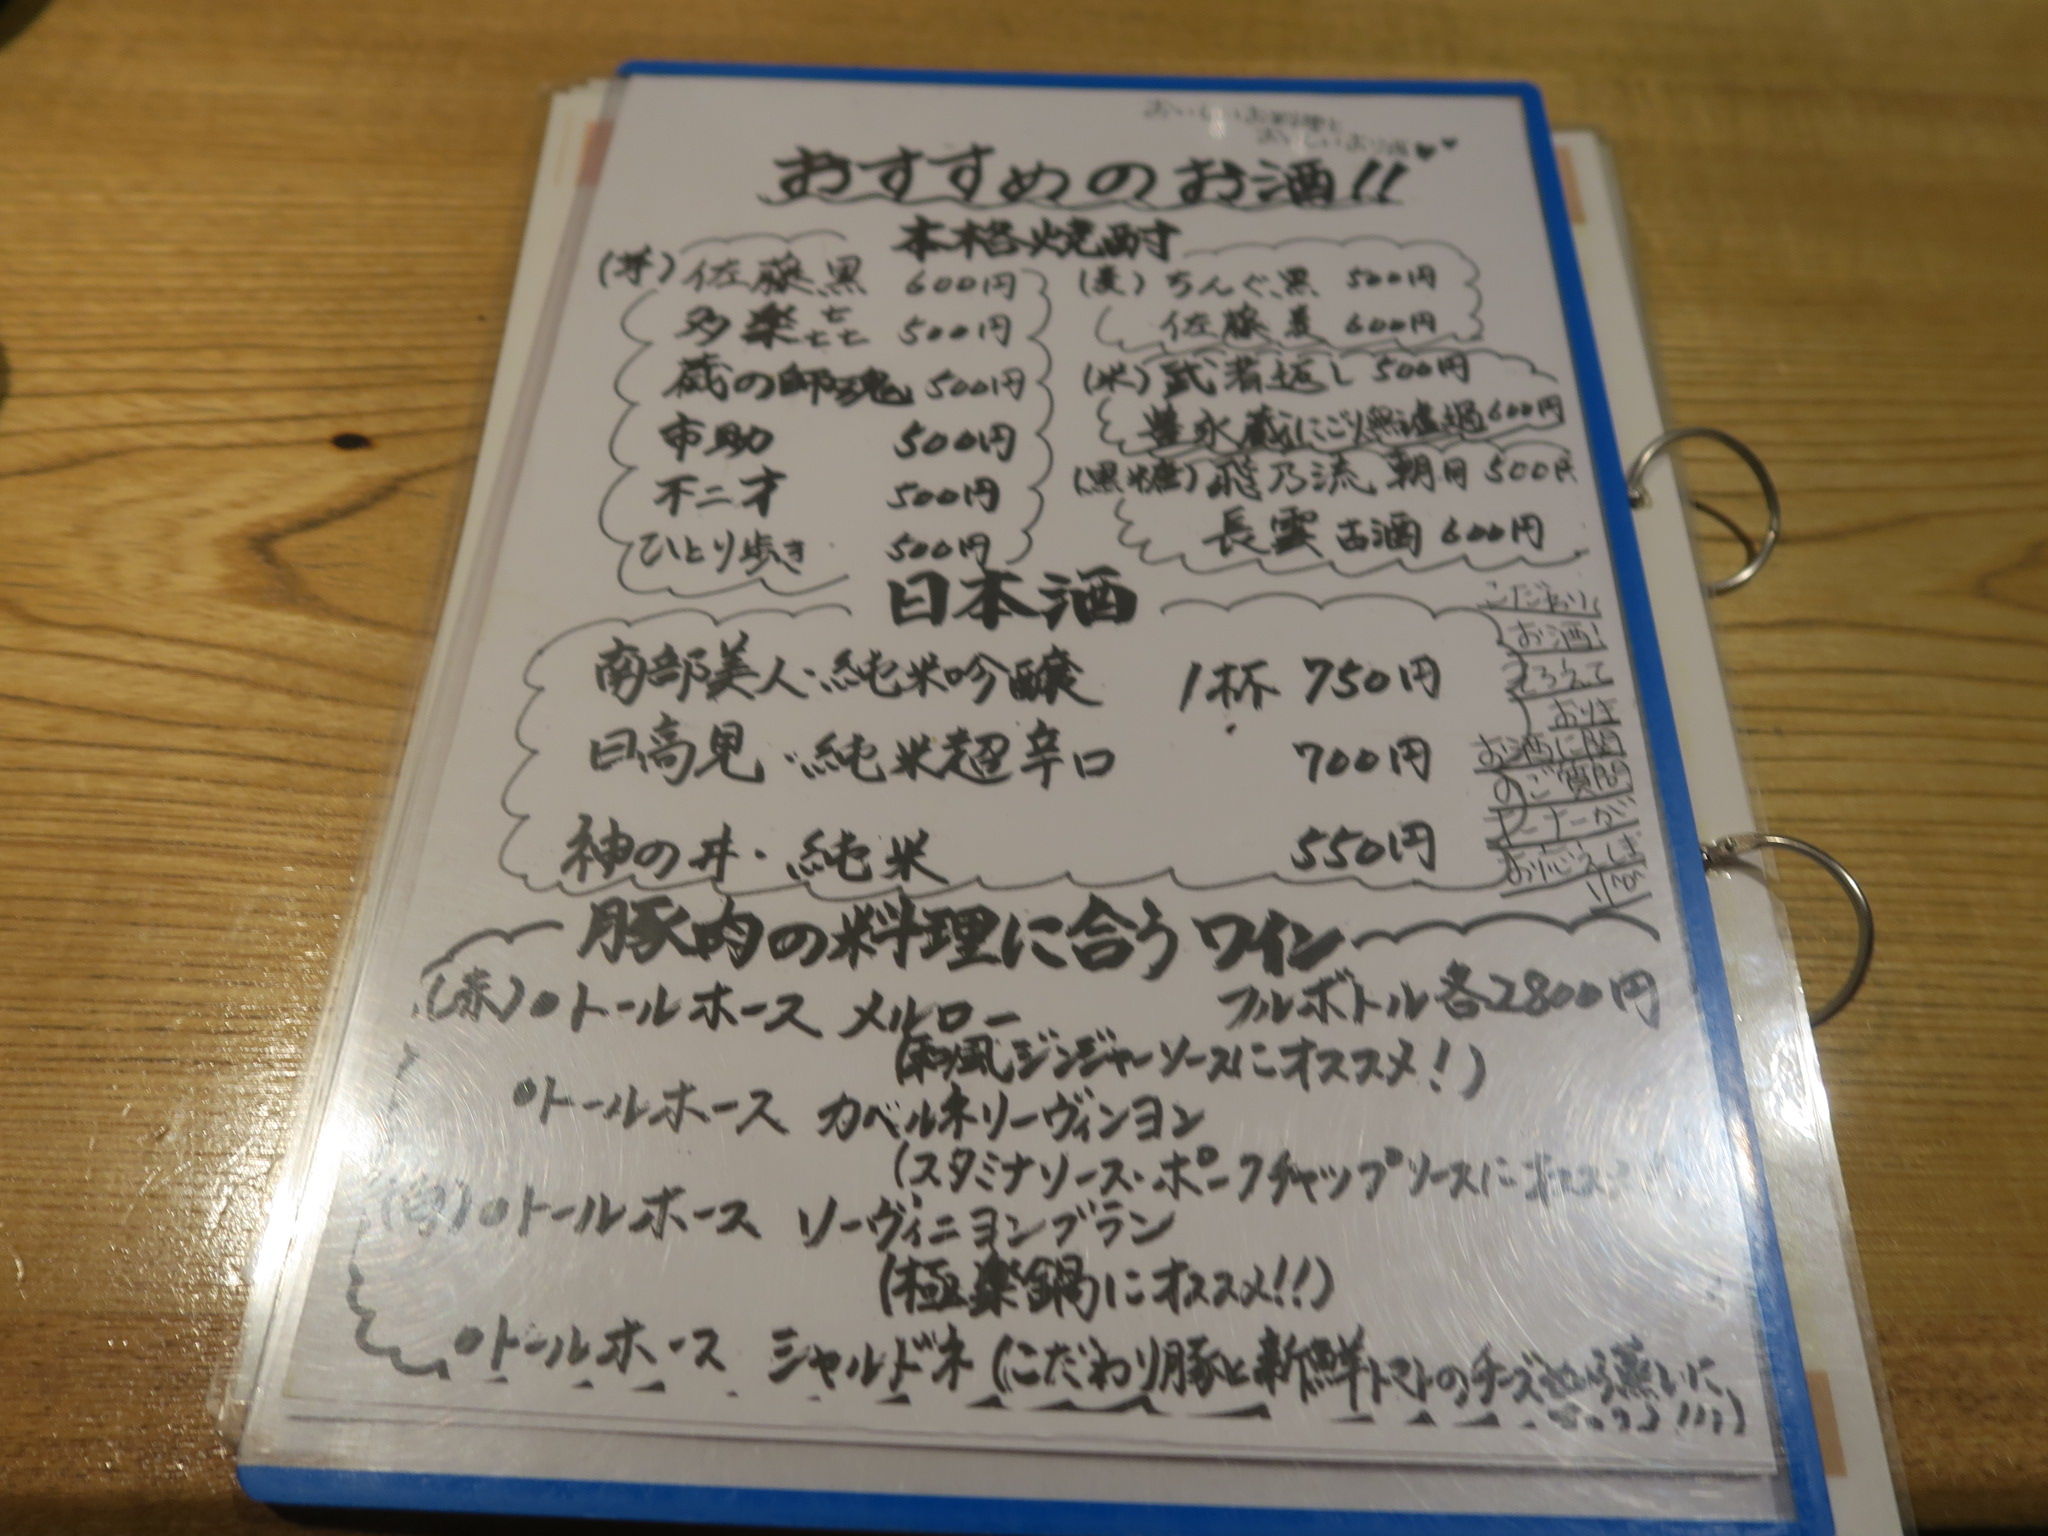 おいしいお料理と
おいしいお酒♥♥
おすすめのお酒!!
本格焼酎
(芋) 佐藤黒 600円
多楽㐂 500円
蔵の師魂 500円
市助 500円
不二才 500円
ひとり歩き 500円
(麦) ちんぐ黒 500円
佐藤麦 600円
(米) 武者返し 500円
豊永蔵にごり無濾過 600円
(黒糖) 飛乃流 朝日 500円
長雲 古酒 600円
日本酒
南部美人・純米吟醸 1杯 750円
日高見・純米超辛口 700円
神の井・純米 550円
こだわり
お酒!
そろえて
おりま
お酒に関
のご質問
オーナーが
お応えしま
豚肉の料理に合うワイン
(赤)●トールホース メルロー フルボトル各2800円
(和風ジンジャーソースにオススメ!)
●トールホース カベルネソーヴィンヨン
(スタミナソース・ポークチャップソースにオススメ
(白)●トールホース ソーヴィニヨンブラン
(極楽鍋にオススメ!!)
●トールホース シャルドネ (こだわり豚と新鮮トマトのチーズせいろ蒸しに